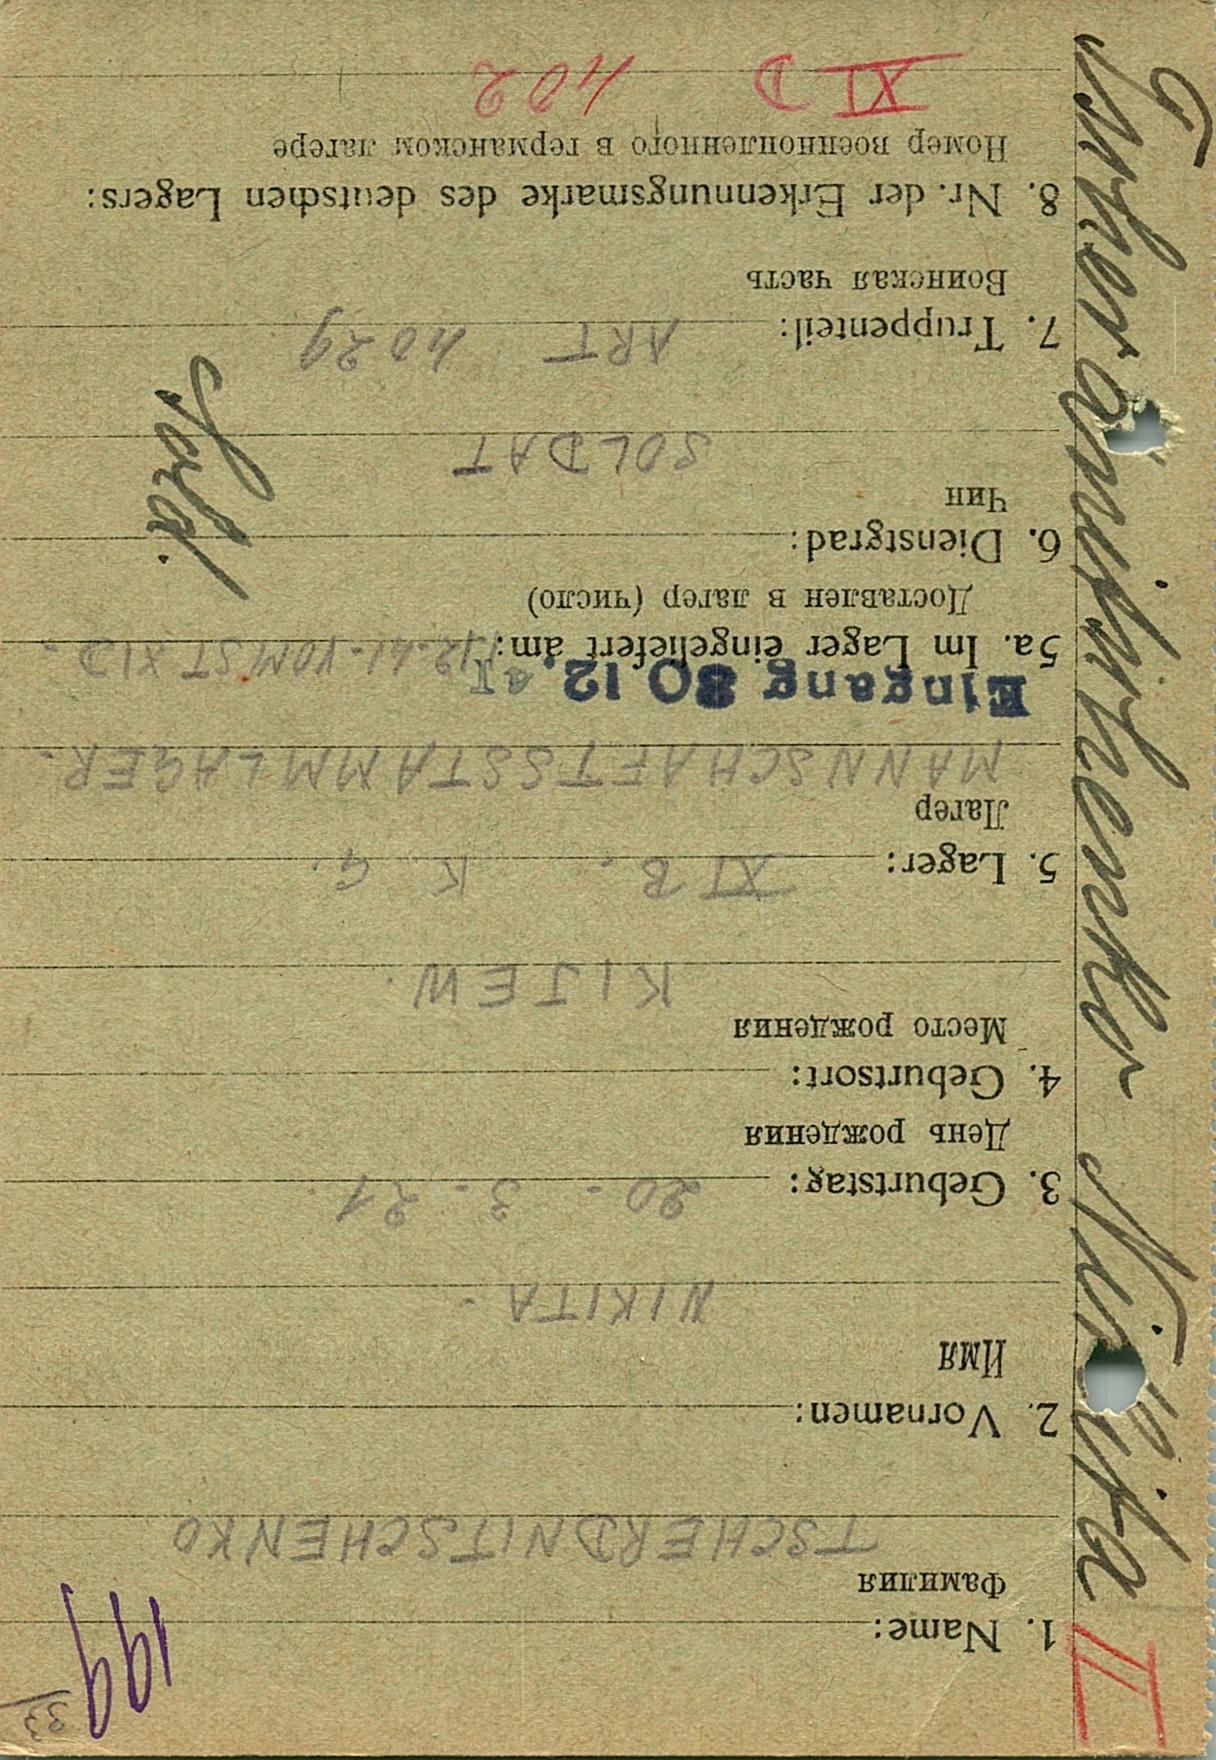 199
33
II
1. Name:
Фамилия
TSCHERDNITSCHENKO
2. Vornamen:
Имя
NIKITA -
3. Geburtstag: 20. - 3. - 21.
День рождения
4. Geburtsort:
Место рождения
KIJEW.
5. Lager: XI B. K. G.
Лагер
MANNSCHAFTSSTAMMLAGER-
Eingang 30.12.41
5a. Im Lager eingeliefert am: 12.41- VOM ST XI D-
Доставлен в лагер (число)
6. Dienstgrad:
Чин
SOLDAT
Sold.
7. Truppenteil: ART 4029
Воинская часть
8. Nr. der Erkennungsmarke des deutschen Lagers:
Номер военнопленного в германском лагере
XI D 402
Nikita